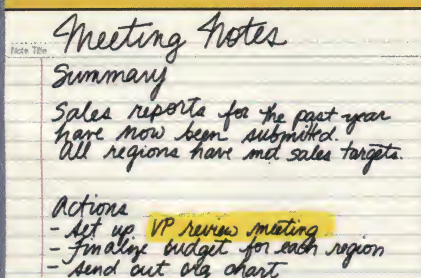 Meeting Notes
Note Title
Summary
Sales reports for the past year
have now been submitted.
All regions have met sales targets.
Actions
- Set up VP review meeting
- Finalize budget for each region
- Send out org chart